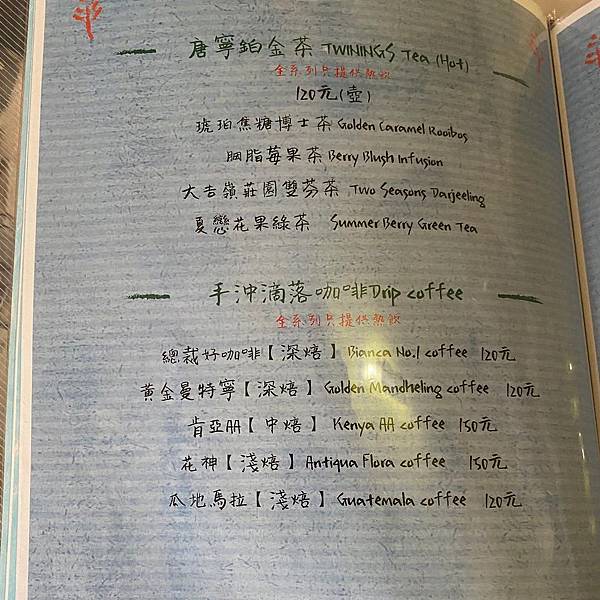 唐寧鉑金茶 TWININGS Tea (Hot)
全系列只提供熱飲
120元(壺)
琥珀焦糖博士茶 Golden Caramel Rooibos
胭脂莓果茶 Berry Blush Infusion
大吉嶺莊園雙芬茶 Two Seasons Darjeeling
夏戀花果綠茶 Summer Berry Green Tea
手沖滴落咖啡Drip coffee
全系列只提供熱飲
總裁好咖啡【深焙】Bianca No.1 coffee 120元
黃金曼特寧【深焙】Golden Mandheling coffee 120元
肯亞AA【中焙】Kenya AA coffee 150元
花神【淺焙】Antiqua Flora coffee 150元
瓜地馬拉【淺焙】Guatemala coffee 120元